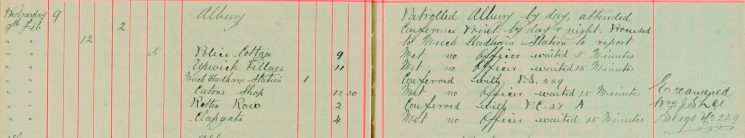 Wednesday 9 2 Albury Patrolled Albury by day, attended
9th Feb Conference Point by day & night. Proceeded
" " 12 to Much Hadham Station to report
" " 5 Police Cottage 9 Met no Officer waited 5 Minutes
" " Village 11 Met no Officer waited 15 Minutes
" " Much Hadham Station 1 Conferred with P.S. 229
" " Shop 12 30 Met no Officer waited 15 Minutes Examined
" " Row 2 Conferred with P.C. 28 A Wm J
" " Clapgate 4 Met no Officer waited 15 Minutes Sergt No 229